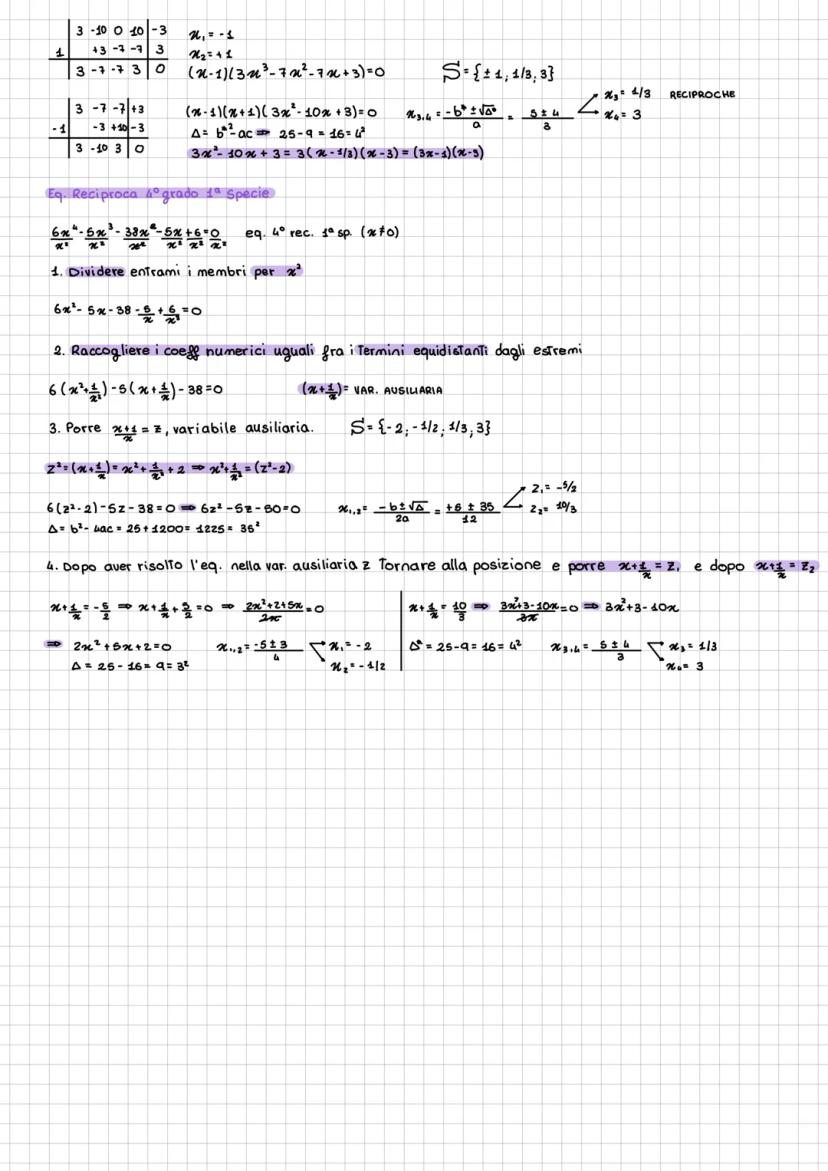 3 -10 0 10 -3
1 +3 -7 -7 3
3 -7 -7 3 0
x₁ = -1
x₂ = +1
(x-1)(3x³-7x²-7x+3)=0 S={±1; 1/3; 3}
3 -7 -7 +3
-1 -3 +10 -3
3 -10 3 0
(x-1)(x+1)(3x²-10x+3)=0 x₃,₄ = -b* ± √Δ* / a = 5 ± 4 / 3 x₃ = 1/3 x₄ = 3 RECIPROCHE
Δ = b*² - ac ⇒ 25 - 9 = 16 = 4²
3x² - 10x + 3 = 3(x - 1/3)(x - 3) = (3x-1)(x-3)
Eq. Reciproca 4° grado 1ª Specie
6x⁴/x² - 5x³/x² - 38x²/x² - 5x/x² + 6/x² = 0/x² eq. 4° rec. 1ª sp. (x≠0)
1. Dividere entrami i membri per x²
6x² - 5x - 38 - 5/x + 6/x² = 0
2. Raccogliere i coeff numerici uguali fra i Termini equidistanti dagli estremi
6(x²+1/x²) - 5(x+1/x) - 38 = 0 (x+1/x) = VAR. AUSILIARIA
3. Porre x+1/x = z, variabile ausiliaria. S={-2; -1/2; 1/3; 3}
z² = (x+1/x) = x² + 1/x² + 2 ⇒ x²+1/x² = (z²-2)
6(z²-2) - 5z - 38 = 0 ⇒ 6z² - 5z - 50 = 0 x₁,₂ = -b ± √Δ / 2a = +5 ± 35 / 12 z₁ = -5/2 z₂ = 10/3
Δ = b² - 4ac = 25 + 1200 = 1225 = 35²
4. Dopo aver risolto l'eq. nella var. ausiliaria z Tornare alla posizione e porre x+1/x = z₁ e dopo x+1/x = z₂
x+1/x = -5/2 ⇒ x+1/x + 5/2 = 0 ⇒ 2x²+2+5x / 2x = 0
⇒ 2x²+5x+2=0 x₁,₂ = -5 ± 3 / 4 x₁ = -2 x₂ = -1/2
Δ = 25 - 16 = 9 = 3²
x+1/x = 10/3 ⇒ 3x²+3-10x / 3x = 0 ⇒ 3x²+3-10x
Δ* = 25-9 = 16 = 4² x₃,₄ = 5 ± 4 / 3 x₃ = 1/3 x₄ = 3